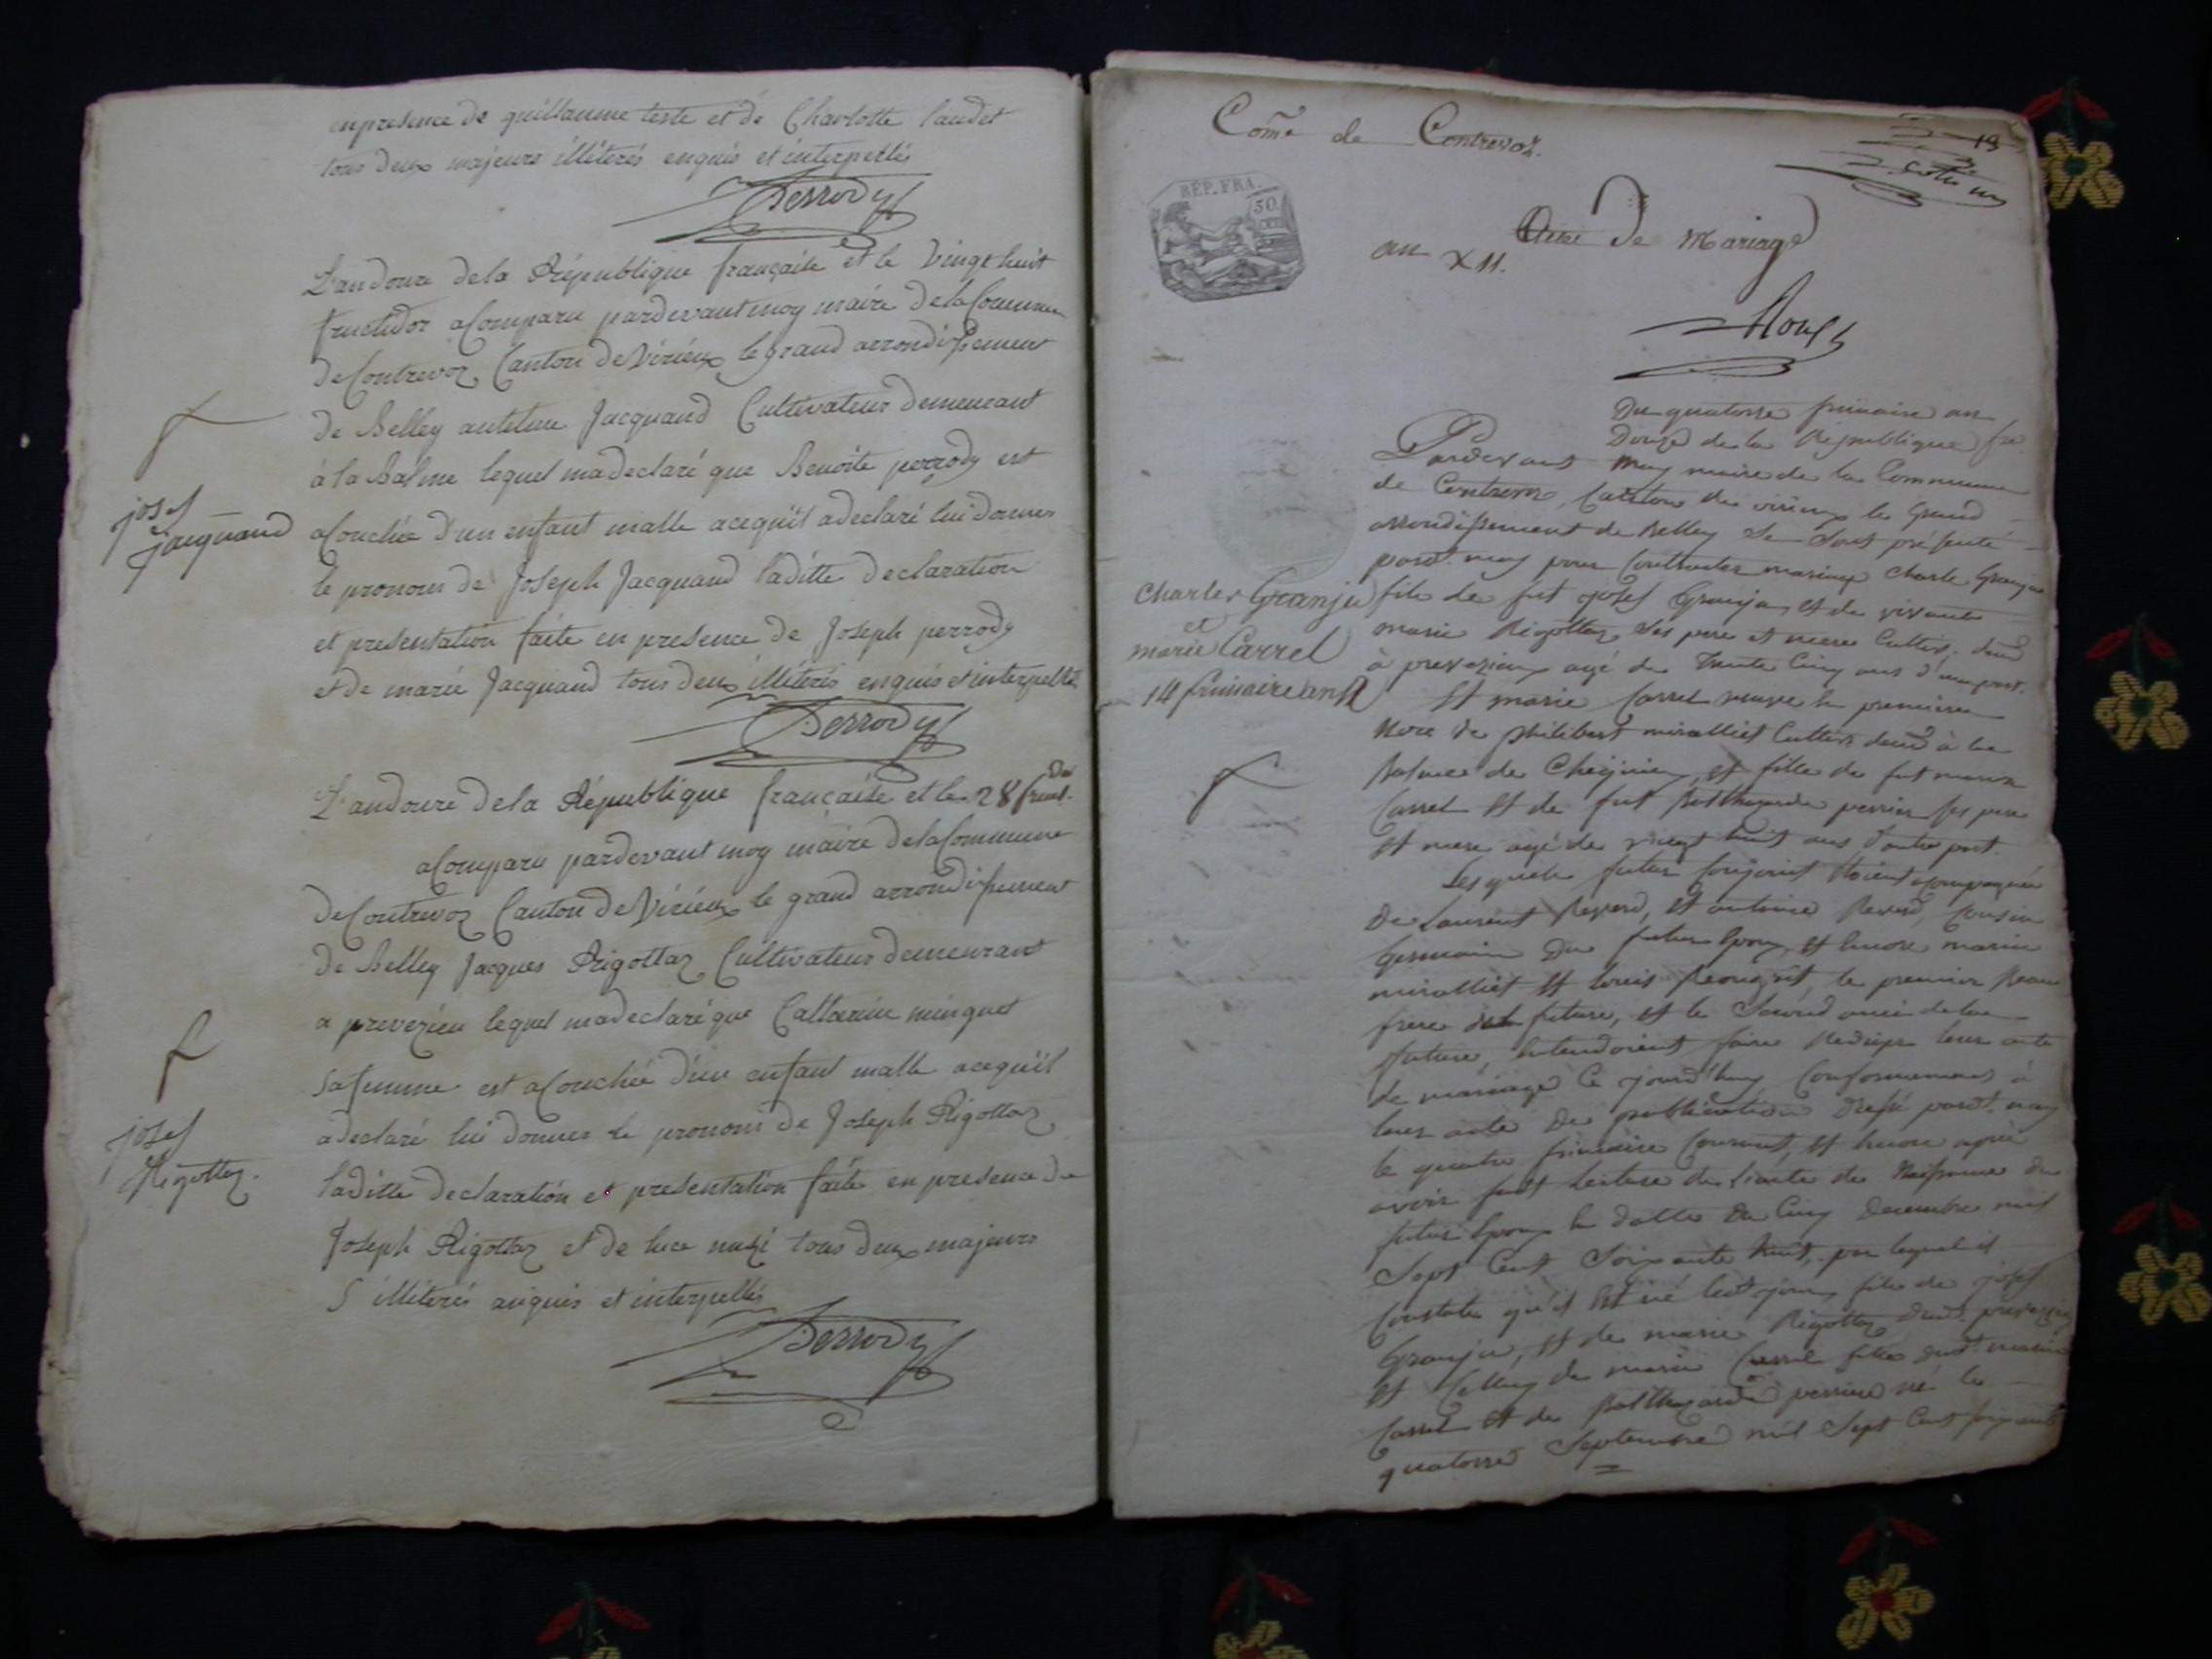 enpresence de guillaume teste et de Charlotte laudet
tous deux majeurs illiterés enquis et interpellés
Perrody
L'an douze de la République française et le vingt huit
fructidor a Comparu pardevant moy maire de la Commune
de Contrevoz Canton de Virieux le grand arrondissement
de Belley antelme Jacquand Cultivateur demeurant
à la Balme lequel ma declaré que Benoite perrody est
josef
jacquand
acouchée d'un enfant malle acequil a declaré lui donner
le pronom de Joseph Jacquand laditte declaration
et presentation faite en presence de Joseph perrody
et de marie Jacquand tous deux illiterés enquis et interpellés
Perrody
L'an douze de la République française et le 28 fruct. dor
a Comparu pardevant moy maire de la Commune
de Contrevoz Canton de Virieux le grand arrondissement
de Belley Jacques Rigottaz Cultivateur demeurant
a prevezieu lequel ma declaré que Catterine minguet
sa femme est acouchée d'un enfant malle acequil
josef
Rigottaz.
a declaré lui donner le pronom de Joseph Rigottaz
laditte declaration et presentation faite en presence de
Joseph Rigottaz et de luce tous deux majeurs
illiterés anquis et interpellés
Perrody
Come de Contrevoz.
19
REP. FRA.
50
Acte de Mariage
an XII.
Du quatorze frimaire an
Douze de la République fre.
Pardevant moy maire de la Commune
de Contrevoz, Canton de virieux le Grand
arrondissement de Belley Se Sont présenté
pardt. moy pour Contracter mariage Charle Granja
Charles Granja
et
marie Carrel
14 frimaire an 12
fils de fut josef Granja, et de vivante
marie Rigottaz ses pere et mere Cultivr. demt
à prevezieux agé de Trente Cinq ans d'une part.
Et marie Carrel veuve en premiere
Noce de philibert miralliet Cultivr. demt à la
Balme de Cheignieu, et fille de fut
Carrel et de fut Balthazarde perrin ses pere
et mere agé de vingt huit ans d'autre part.
Lesquels futur Conjoint étoient acompagnés
De Laurent Reverd, et antoine Reverd, Cousin
Germain du futur Epoux, et Encore
miralliet et Louis, le premier Beau
frere de la future, et le Second ami de la
future, Entendoient faire Rediger leur acte
de mariage Ce jourd'huy Conformement à
leur acte De publication Dressé pardt. moy
le quatre frimaire Courant, et Encore après
avoir fait lecture de l'acte de Naissance du
futur Epoux En datte du Cinq Decembre mil
Sept Cent Soixante huit, par lequel il
Constate qu'il Est né led. jour, fils de josef
Granja, et de marie Rigottaz demt. prevezieu
et Celluy de marie Carrel fille dudt.
Carrel et de Balthazarde perrin né le
quatorze Septembre mil Sept Cent